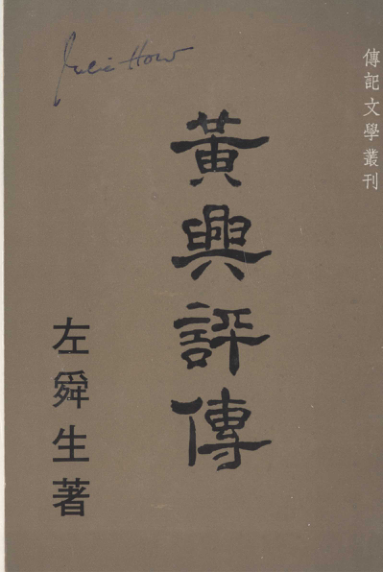 Julia How
傳記文學叢刊
黃興評傳
左舜生著